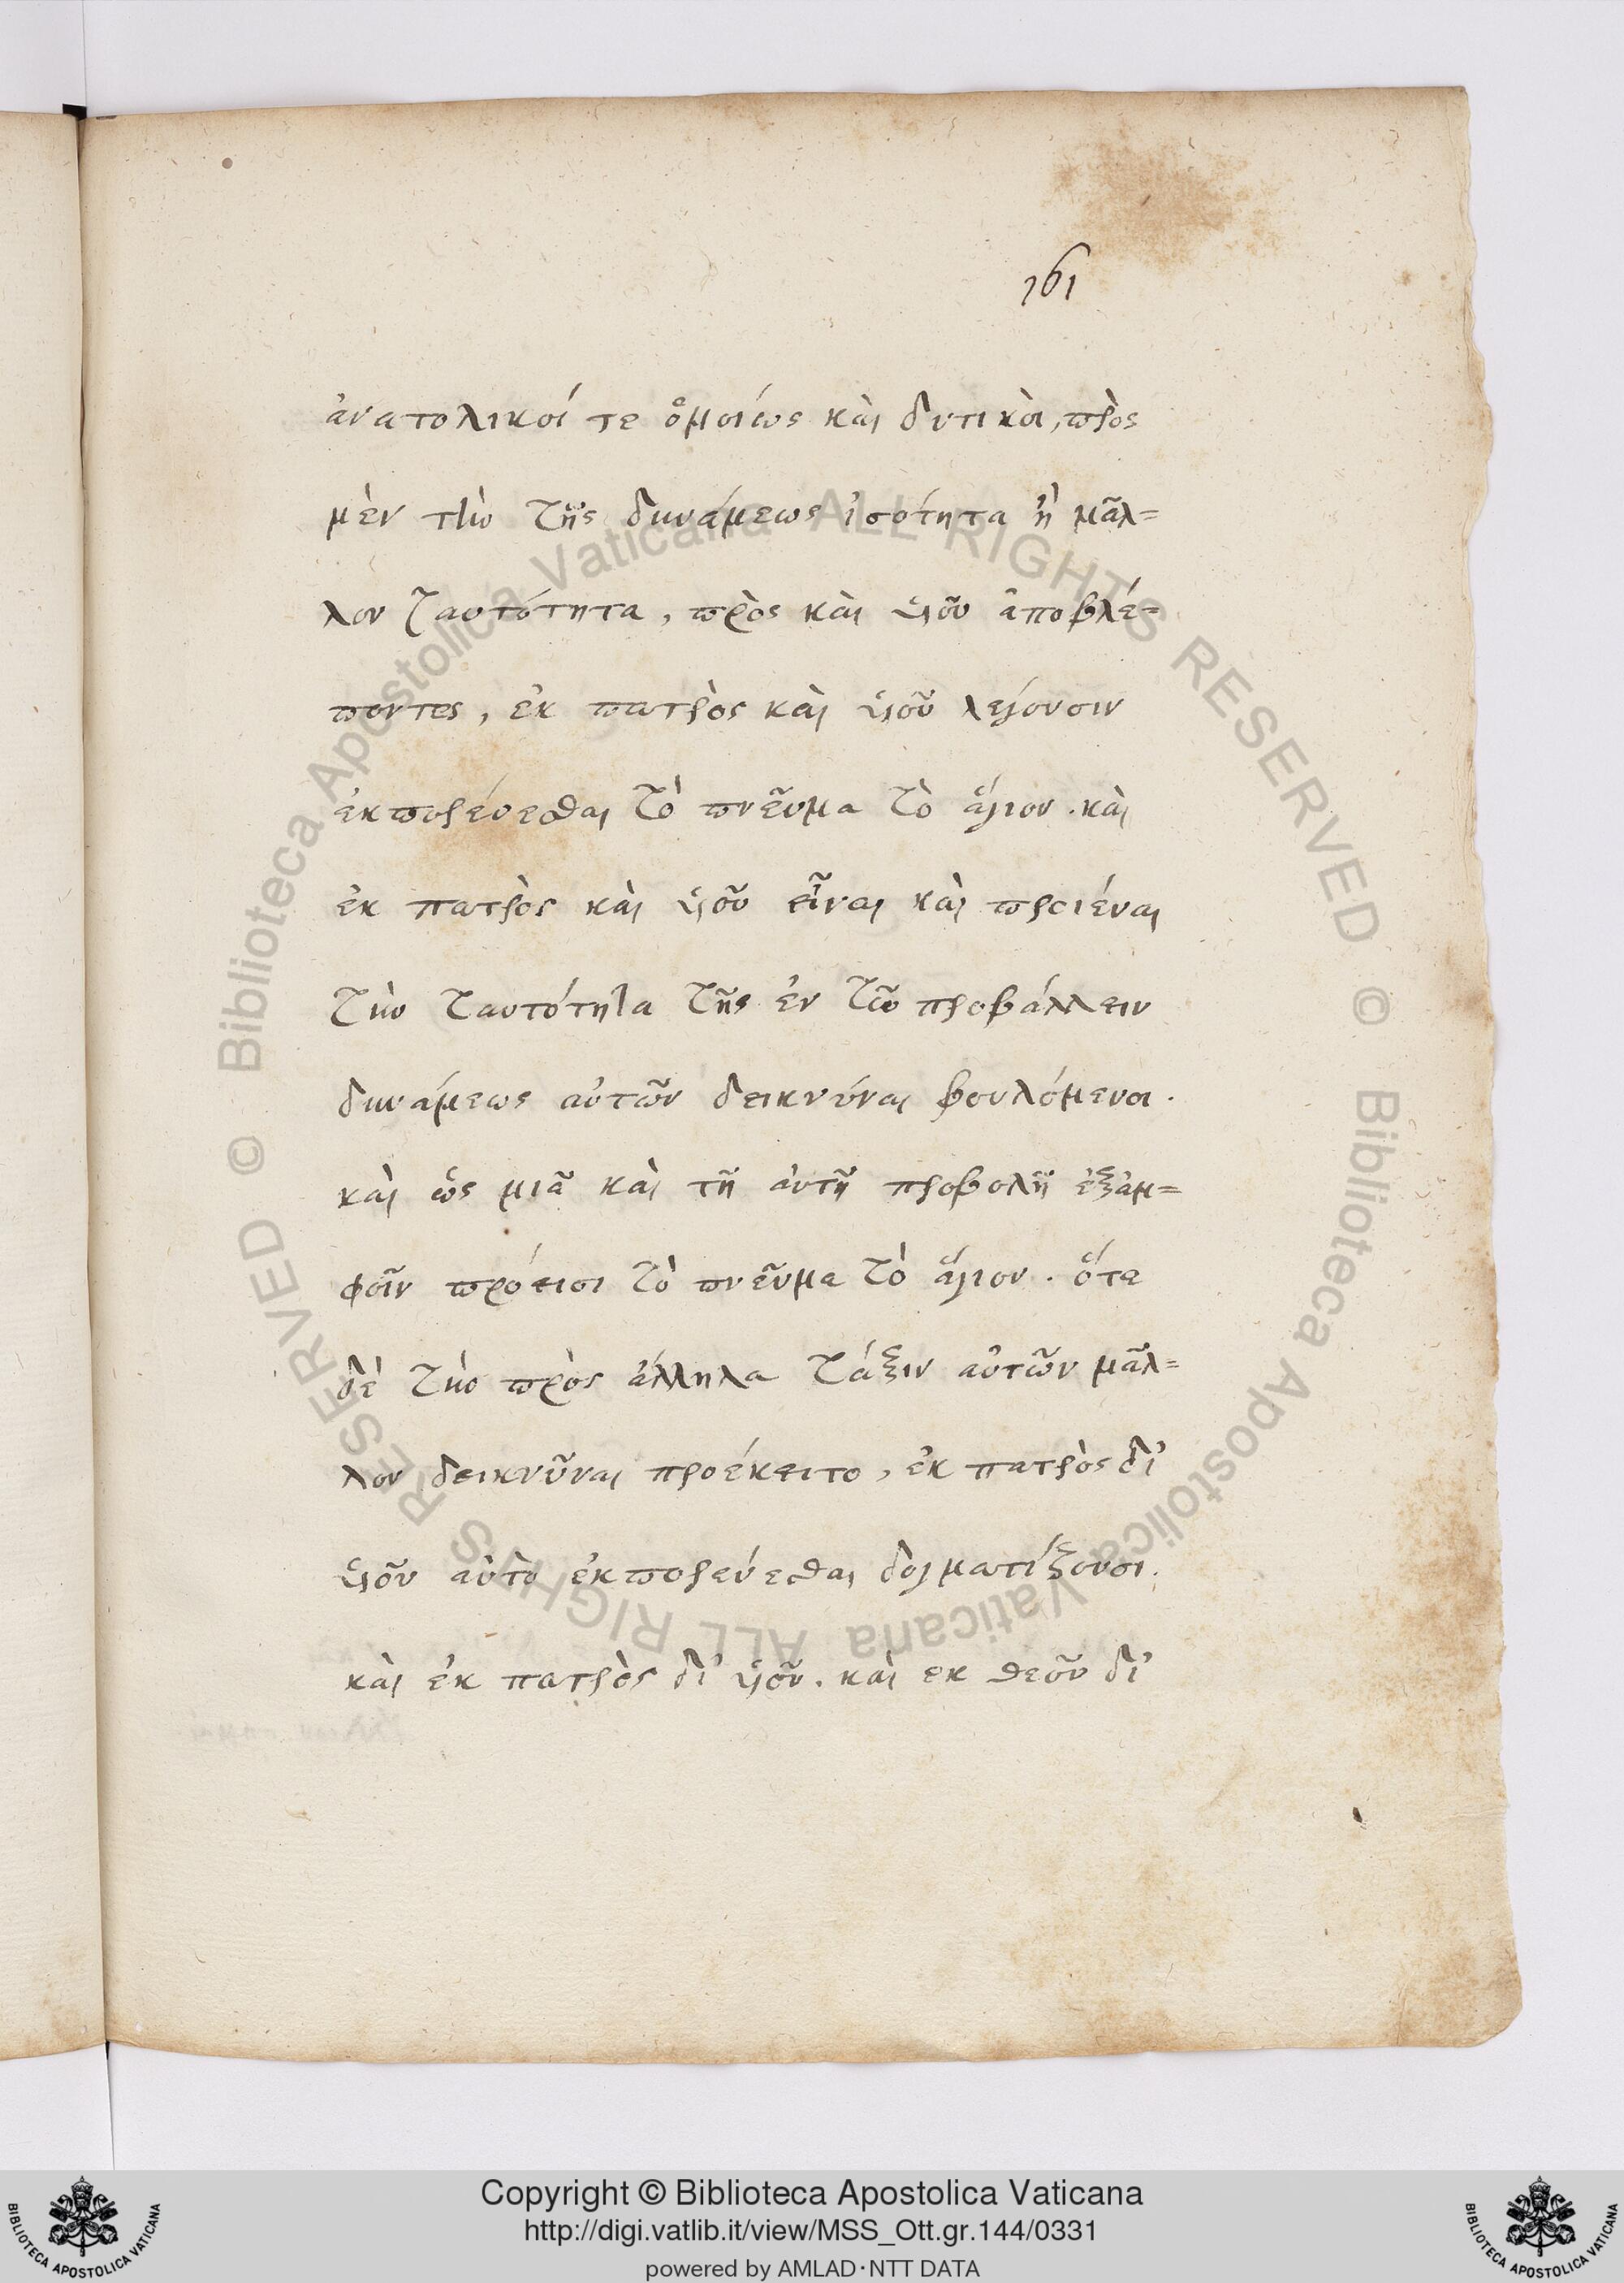 161
ἀνατολικοί τε ὁμοίως καὶ δυτικοὶ, πρὸς
μὲν τὴν τῆς δυνάμεως ἰσότητα ἢ μᾶλ=
λον ταυτότητα, πρὸς καὶ υἱοῦ ἀποβλέ=
ποντες, ἐκ πατρὸς καὶ υἱοῦ λέγουσιν
ἐκπορεύεσθαι τὸ πνεῦμα τὸ ἅγιον. καὶ
ἐκ πατρὸς καὶ υἱοῦ εἶναι καὶ προϊέναι
τὴν ταυτότητα τῆς ἐν τῶ προβάλλειν
δυνάμεως αὐτῶν δεικνύναι βουλόμενοι.
καὶ ὡς μιᾶ καὶ τῆ αὐτῆ προβολῆ ἐξἀμ=
φοῖν πρόεισι τὸ πνεῦμα τὸ ἅγιον. ὅτε
δὲ τὴν πρὸς ἄλληλα τάξιν αὐτῶν μᾶλ=
λον δεικνῦναι προέκειτο, ἐκ πατρὸς δι'
υἱοῦ αὐτὸ ἐκπορεύεσθαι δογματίζουσι.
καὶ ἐκ πατρὸς δι' υἱοῦ. καὶ ἐκ θεοῦ δι'
© Biblioteca Apostolica Vaticana ALL RIGHTS RESERVED
© Biblioteca Apostolica Vaticana ALL RIGHTS RESERVED
Copyright © Biblioteca Apostolica Vaticana
http://digi.vatlib.it/view/MSS_Ott.gr.144/0331
powered by AMLAD·NTT DATA
BIBLIOTECA APOSTOLICA VATICANA
BIBLIOTECA APOSTOLICA VATICANA